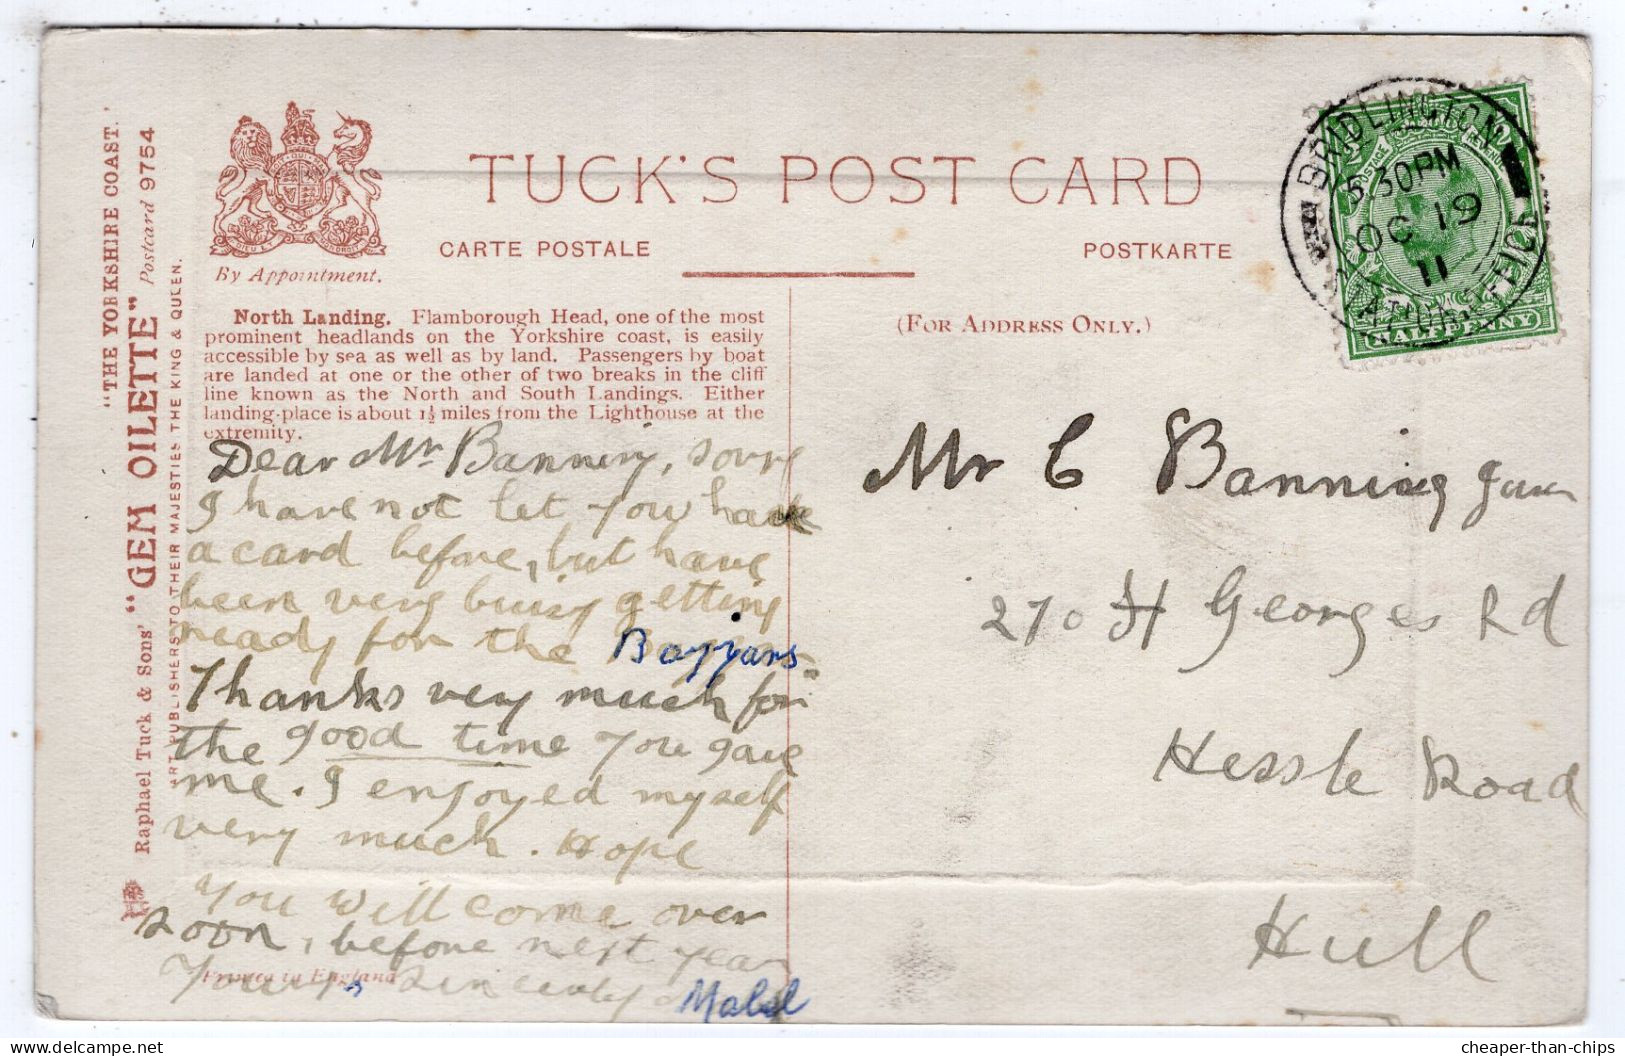 "THE YORKSHIRE COAST."
"GEM OILETTE" Postcard 9754
Raphael Tuck & Sons'
ART PUBLISHERS TO THEIR MAJESTIES THE KING & QUEEN.
By Appointment.
TUCK'S POST CARD
CARTE POSTALE
POSTKARTE
(FOR ADDRESS ONLY.)
North Landing. Flamborough Head, one of the most
prominent headlands on the Yorkshire coast, is easily
accessible by sea as well as by land. Passengers by boat
are landed at one or the other of two breaks in the cliff
line known as the North and South Landings. Either
landing-place is about 1½ miles from the Lighthouse at the
extremity.
Dear Mr Banning, sorry
I have not let you have
a card before, but have
been very busy getting
ready for the
Thanks very much for
the good time you gave
me. I enjoyed myself
very much. Hope
you will come over
soon, before next year
Yours Sincerely
Mabel
Printed in England
BRIDLINGTON
30PM
OC 19
11
STATION OFFICE
POSTAGE
REVENUE
HALFPENNY
Mr C Banning Junr
270 St Georges Rd
Hessle Road
Hull
cheaper-than-chips